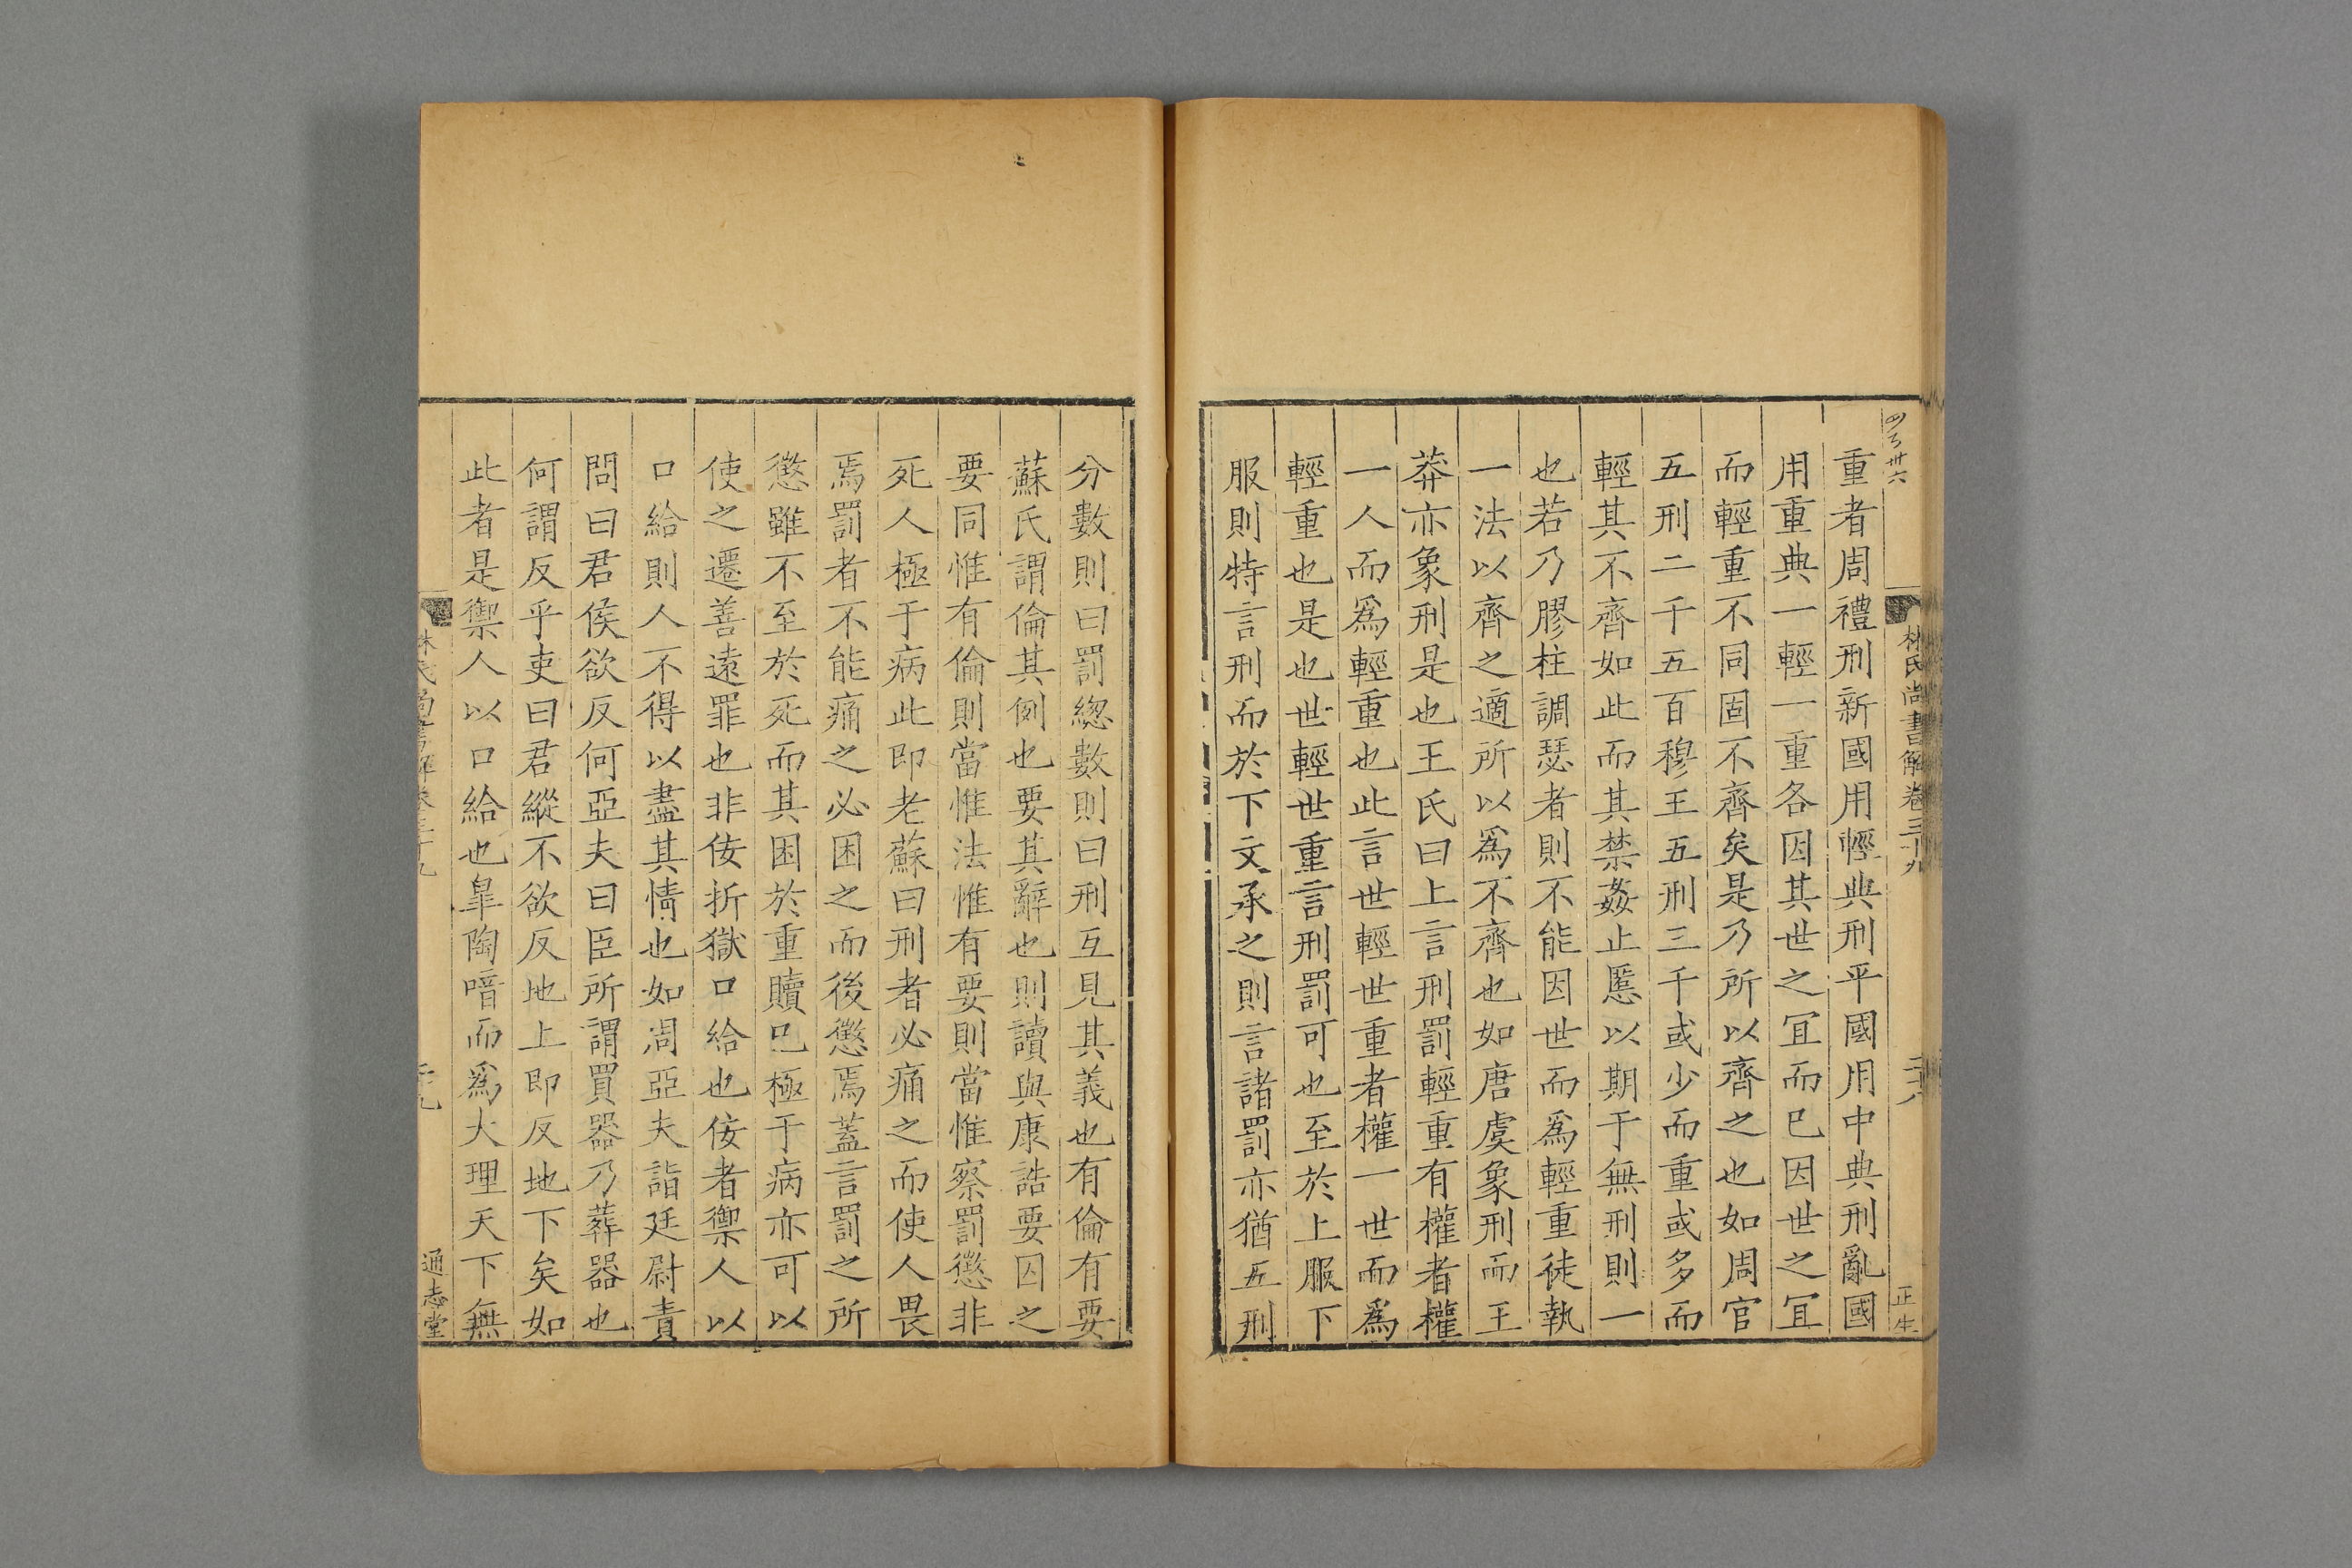 四百卅六
林氏尚書解卷三十九
二十八
正生
重者周禮刑新國用輕典刑平國用中典刑亂國
用重典一輕一重各因其世之宜而已因世之宜
而輕重不同固不齊矣是乃所以齊之也如周官
五刑二千五百穆王五刑三千或少而重或多而
輕其不齊如此而其禁姦止慝以期于無刑則一
也若乃膠柱調瑟者則不能因世而爲輕重徒執
一法以齊之適所以爲不齊也如唐虞象刑而王
莽亦象刑是也王氏曰上言刑罰輕重有權者權
一人而爲輕重也此言世輕世重者權一世而爲
輕重也是也世輕世重言刑罰可也至於上服下
服則特言刑而於下文承之則言諸罰亦猶五刑
分數則曰罰緫數則曰刑互見其義也有倫有要
蘇氏謂倫其例也要其辭也則讀與康誥要囚之
要同惟有倫則當惟法惟有要則當惟察罰懲非
死人極于病此即老蘇曰刑者必痛之而使人畏
焉罰者不能痛之必困之而後懲焉蓋言罰之所
懲雖不至於死而其困於重贖已極于病亦可以
使之遷善遠罪也非佞折獄口給也佞者禦人以
口給則人不得以盡其情也如周亞夫詣廷尉責
問曰君侯欲反何亞夫曰臣所謂買器乃葬器也
何謂反乎吏曰君縱不欲反地上即反地下矣如
此者是禦人以口給也臯陶喑而爲大理天下無
林氏尚書解卷三十九
二十九
通志堂